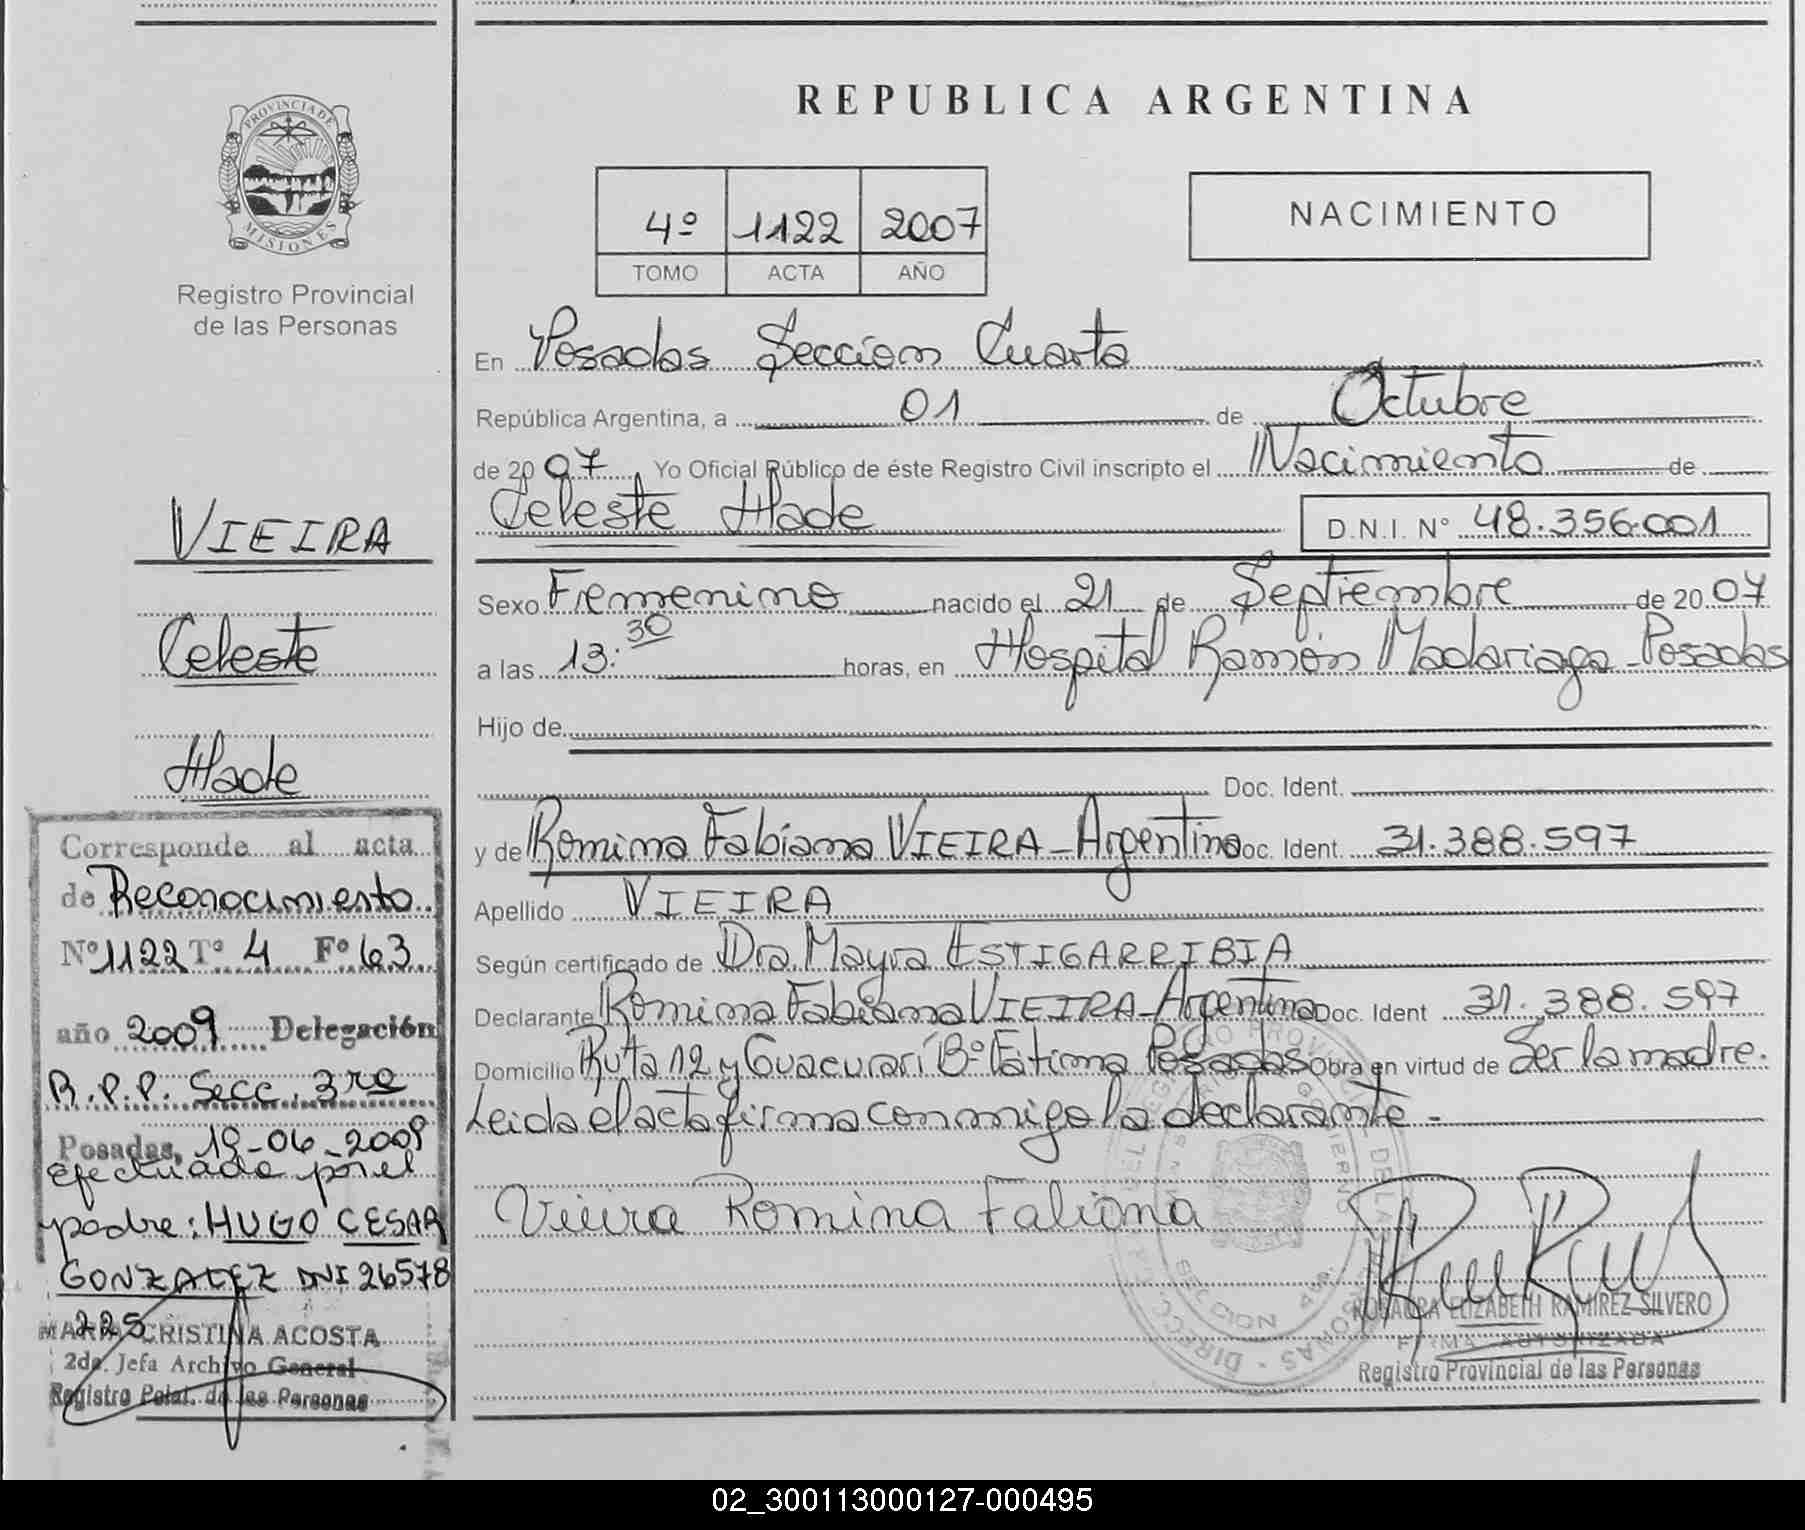 PROVINCIA DE
MISIONES
Registro Provincial
de las Personas
VIEIRA
Celeste
Hade
Corresponde al acta
de Reconocimiento
Nº 1122 Tº 4 Fº 63
año 2009 Delegación
R.P.P. Secc. 3ra
Posadas, 19-06-2009
efectuada por el
padre: HUGO CESAR
GONZALEZ DNI 26578
225
MARIA CRISTINA ACOSTA
2da. Jefa Archivo General
Registro de las Personas
REPUBLICA ARGENTINA
4º 1122 2007
TOMO ACTA AÑO
NACIMIENTO
En Posadas Seccion Cuarta
República Argentina, a 01 de Octubre
de 2007 Yo Oficial Público de éste Registro Civil inscripto el Nacimiento de
Celeste Hade D.N.I. Nº 48.356.001
Sexo Femenino nacido el 21 de Septiembre de 2007
a las 13:30 horas, en Hospital Ramón Madariaga - Posadas
Hijo de
Doc. Ident.
y de Romina Fabiana VIEIRA - Argentina Doc. Ident. 31.388.597
Apellido VIEIRA
Según certificado de Dra. Mayra ESTIGARRIBIA
Declarante Romina Fabiana VIEIRA - Argentina Doc. Ident 31.388.597
Domicilio Ruta 12 y Guacurarí Bº Fátima Posadas Obra en virtud de Ser la madre.
Leida el acta firma conmigo la declarante.-
Vieira Romina Fabiana
ROSAURA ELIZABETH RAMIREZ SILVERO
FIRMA AUTORIZADA
Registro Provincial de las Personas
02_300113000127-000495